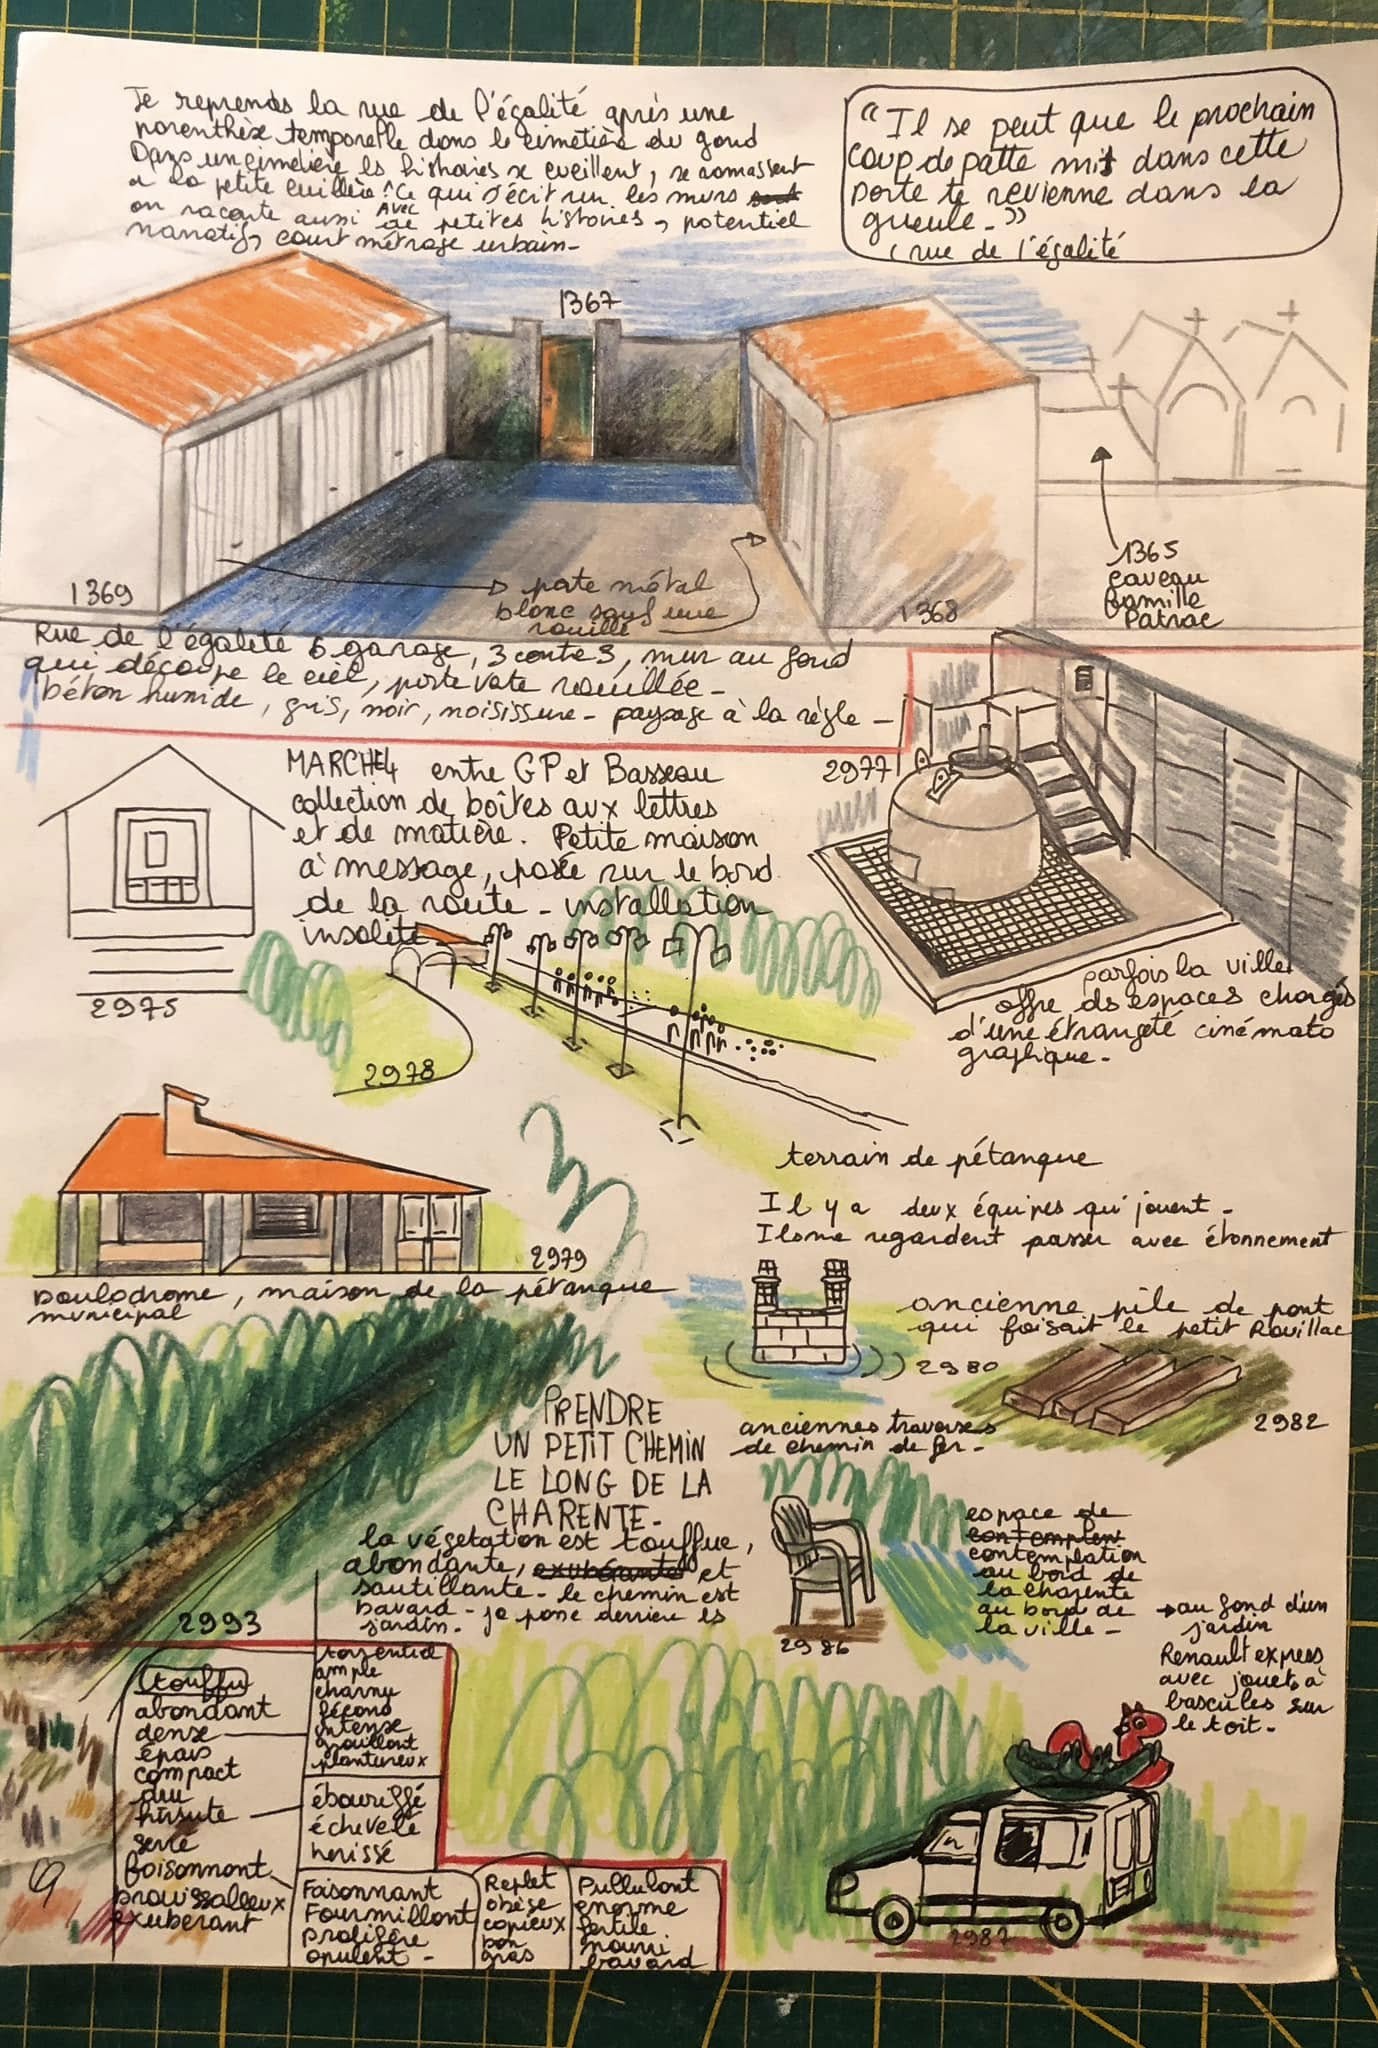 Je reprends la rue de l'égalité après une
parenthèse temporelle dans le cimetière du gond
Dans un cimetière les histoires se cueillent, se ramassent
à la petite cuillère. Ce qui s'écrit sur les murs
on raconte aussi AVEC de petites histoires, potentiel
narratif, court métrage urbain -
"Il se peut que le prochain
coup de patte mis dans cette
porte te revienne dans la
gueule."
rue de l'égalité
1367
1369
porte métal
blanc sauf une
rouille
1368
1365
caveau
famille
Patrac
Rue de l'égalité 6 garage, 3 contre 3, mur au fond
qui découpe le ciel, porte verte rouillée -
béton humide, gris, noir, moisissure - paysage à la règle -
MARCHE 4 entre GP et Basseau
collection de boîtes aux lettres
et de matière. Petite maison
à message, posée sur le bord
de la route - installation
insolite
2975
2977
parfois la ville
offre ds espaces chargés
d'une étrangeté cinémato
graphique -
2978
terrain de pétanque
Il y a deux équipes qui jouent -
Ils me regardent passer avec étonnement
2979
Boulodrome, maison de la pétanque
municipal
ancienne pile de pont
qui faisait le petit Rouillac
2980
anciennes traverses
de chemin de fer -
2982
PRENDRE
UN PETIT CHEMIN
LE LONG DE LA
CHARENTE -
la végétation est touffue,
abondante, exubérante et
sautillante - le chemin est
bavard - je passe derrière ls
jardin -
2993
2986
espace de
contemplation
au bord de
la charente
au bord de
la ville -
au fond d'un
jardin
Renault express
avec jouets à
bascules sur
le toit -
2987
touffu
abondant
dense
épais
compact
dru
hirsute
serré
foisonnant
broussailleux
exubérant
torrentiel
ample
charnu
fécond
intense
grouillant
plantureux
ébouriffé
échevelé
hérissé
Foisonnant
Fourmillant
prolifère
opulent -
Replet
obèse
copieux
bon
gras
Pullulant
énorme
fertile
nourri
bavard
9